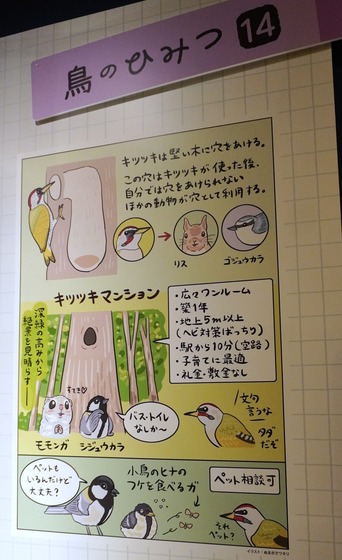 鳥のひみつ 14
キツツキは堅い木に穴をあける。
この穴はキツツキが使った後、
自分では穴をあけられない
ほかの動物が穴として利用する。
リス
ゴジュウカラ
キツツキマンション
深緑の高みから
絶景を見晴らす――
・広々ワンルーム
・築1年
・地上5m以上
(ヘビ対策ばっちり)
・駅から10分(空路)
・子育てに最適
・礼金・敷金なし
すてき♡
モモンガ
シジュウカラ
バス・トイレ
なしか〜
文句
言うな
タダ
だぞ
ペットも
いるんだけど
大丈夫?
小鳥のヒナの
フケを食べるガ
ペット相談可
それ
ペット?
イラスト:ぬまがさワタリ